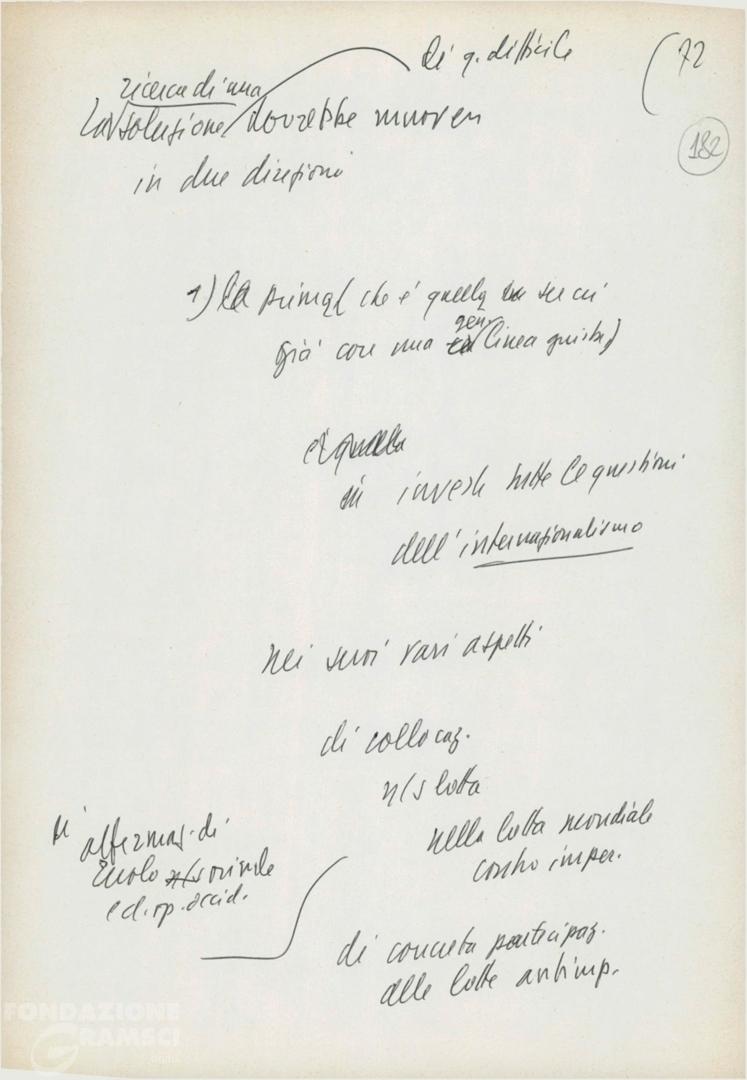 di q. difficile
(72
182
ricerca di una
La soluzione dovrebbe muoversi
in due direzioni
1) la prima (che è quella su cui
già con una gen. linea giusta)
è quella
investe tutte le questioni
dell'internazionalismo
nei suoi vari aspetti
di collocaz.
n/s lotta
nella lotta mondiale
contro imper.
di affermaz. di
ruolo n/s
ed. op. occid.
di concreta partecipaz.
alle lotte antimp.
FONDAZIONE
GRAMSCI